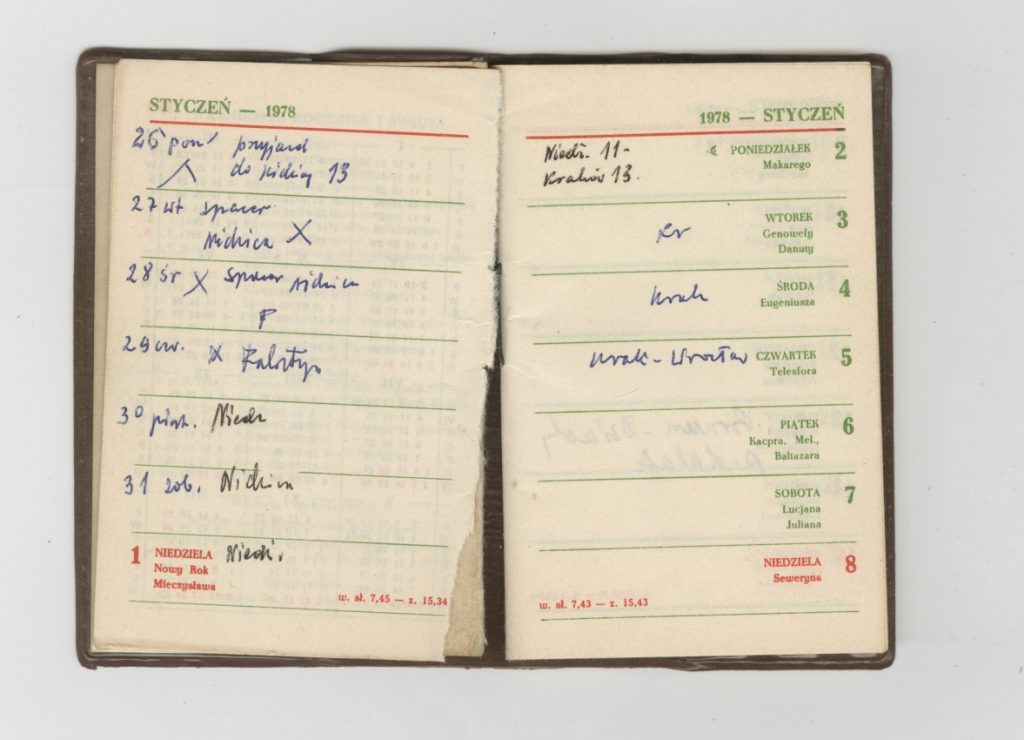 STYCZEŃ — 1978
26 pon przyjazd
do Nidzicy 13
27 wt spacer
Nidzica X
28 śr X spacer Nidzica
29 czw. X
30 piąt. Niedz
31 sob. Nidzica
1 NIEDZIELA Niedz.
Nowy Rok
Mieczysława
w. sł. 7,45 — z. 15,34
1978 — STYCZEŃ
Niedz. 11-
Kraków 13.
PONIEDZIAŁEK 2
Makarego
WTOREK 3
Genowefy
Danuty
Kr
ŚRODA 4
Eugeniusza
Krak
Krak - Wrocław CZWARTEK 5
Telesfora
PIĄTEK 6
Kacpra, Mel.,
Baltazara
SOBOTA 7
Lucjana
Juliana
NIEDZIELA 8
Seweryna
w. sł. 7,43 — z. 15,43